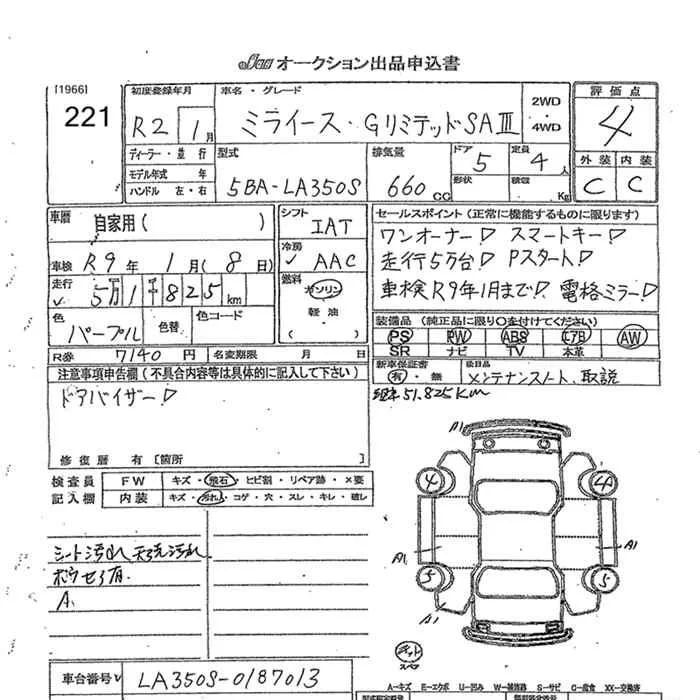 オークション出品申込書
[1966]
221
初度登録年月
R2 1月
ディーラー・並行
モデル年式 年
ハンドル 左・右
車名・グレード
ミライース・GリミテッドSAⅢ
2WD
4WD
型式
5BA-LA350S
排気量
660 CC
ドア
5
形状
定員
4人
積載
Kg
評価点
4
外装 内装
C C
車暦
自家用( )
車検 R9年 1月(8日)
走行
5万1千825km
色
パープル
色替
色コード
シフト
IAT
冷房
AAC
燃料
ガソリン
軽油
( )
R券 7140円 名変期限 月 日
セールスポイント(正常に機能するものに限ります)
ワンオーナー! スマートキー!
走行5万台! Pスタート!
車検R9年1月まで! 電格ミラー!
装備品(純正品に限り〇を付けてください)
PS PW ABS エアB AW
SR ナビ TV 本革
新車保証書
有・無
メンテナンスノート、取説
51,825Km
注意事項申告欄(不具合内容等は具体的に記入して下さい)
ドアバイザー!
修復暦 有[箇所 ]
検査員
記入欄
FW キズ・飛石・ヒビ割・リペア跡・X要
内装 キズ・汚れ・コゲ・穴・スレ・キレ・破レ
シート汚れ 天張汚れ
A1
4
4
A1
A1
5
5
A1
車台番号 LA350S-0187013
A=キズ E=エクボ U=凹み W=補修跡 S=サビ C=腐食 XX=交換済